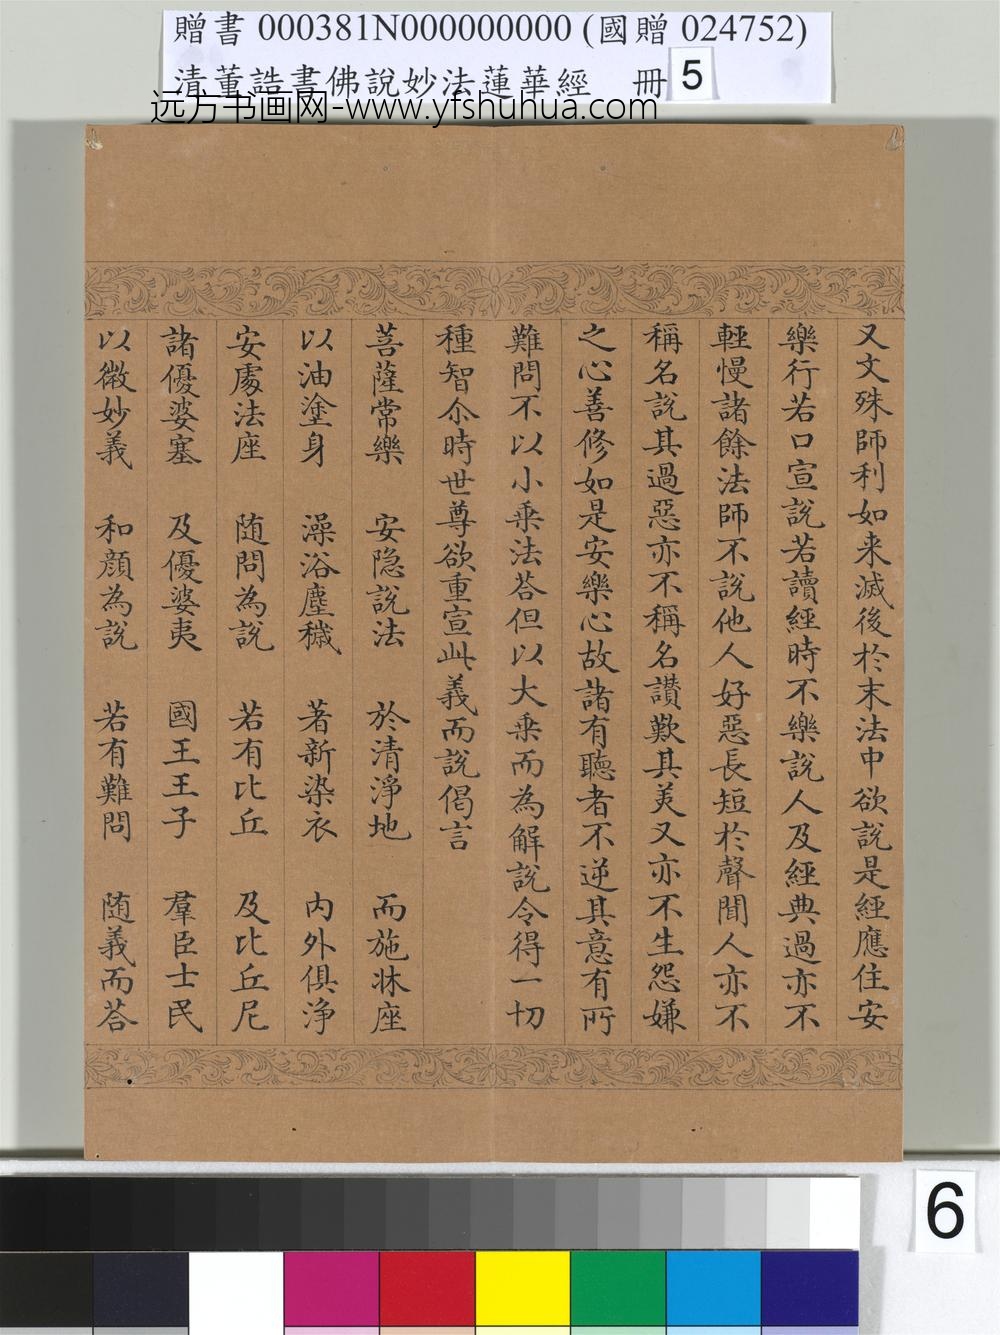 贈書 000381N000000000 (國贈 024752)
清董誥書佛說妙法蓮華經 冊 5
远方书画网-www.yfshuhua.com
又文殊師利如来滅後於末法中欲說是經應住安
樂行若口宣說若讀經時不樂說人及經典過亦不
輕慢諸餘法師不說他人好惡長短於聲聞人亦不
稱名說其過惡亦不稱名讚歎其美又亦不生怨嫌
之心善修如是安樂心故諸有聽者不逆其意有所
難問不以小乗法荅但以大乗而為解說令得一切
種智尒時世尊欲重宣此義而說偈言
菩薩常樂 安隐說法 於清淨地 而施牀座
以油塗身 澡浴塵穢 著新染衣 内外俱淨
安處法座 随問為說 若有比丘 及比丘尼
諸優婆塞 及優婆夷 國王王子 羣臣士民
以微妙義 和顔為說 若有難問 随義而荅
6